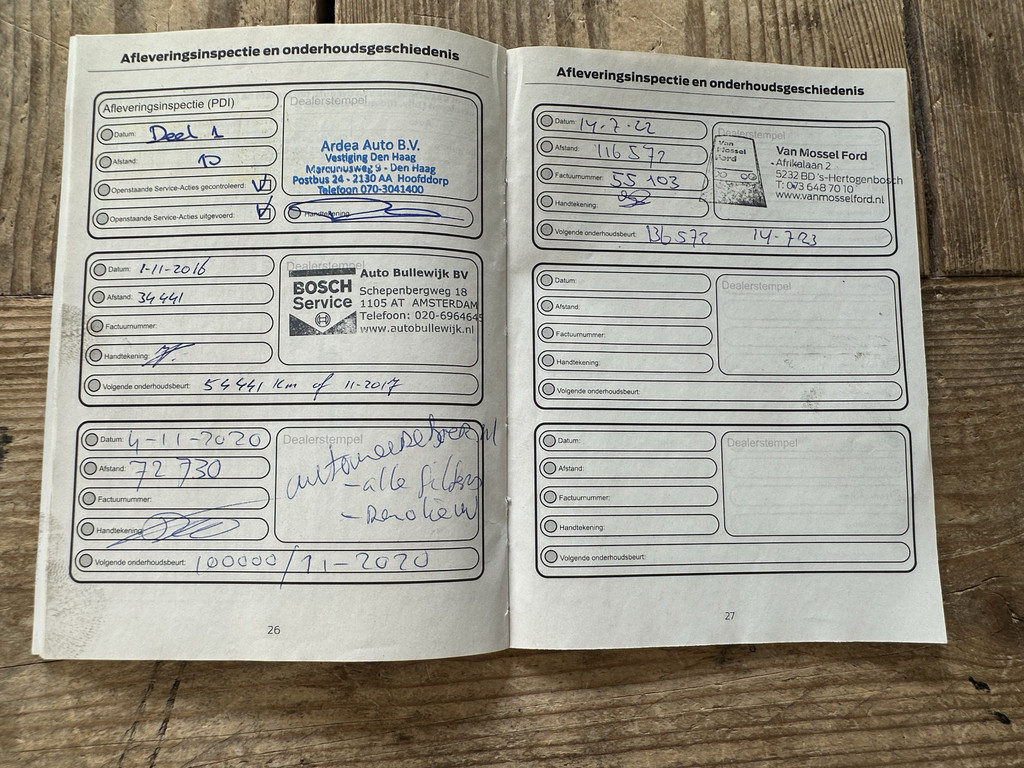 Afleveringsinspectie en onderhoudsgeschiedenis
Afleveringsinspectie (PDI)
Datum: Deel 1
Afstand: 10
Openstaande Service-Acties gecontroleerd:
Openstaande Service-Acties uitgevoerd:
Dealerstempel
Ardea Auto B.V.
Vestiging Den Haag
Mercuriusweg 9 - Den Haag
Postbus 24 - 2130 AA Hoofddorp
Telefoon 070-3041400
Handtekening:
Datum: 1-11-2016
Afstand: 34441
Factuurnummer:
Handtekening:
Volgende onderhoudsbeurt: 54441 Km of 11-2017
Dealerstempel
BOSCH
Service
Auto Bullewijk BV
Schepenbergweg 18
1105 AT AMSTERDAM
Telefoon: 020-696464
www.autobullewijk.nl
Datum: 4-11-2020
Afstand: 72 730
Factuurnummer:
Handtekening:
Volgende onderhoudsbeurt: 100000/11-2020
Dealerstempel
-alle
26
Afleveringsinspectie en onderhoudsgeschiedenis
Datum: 14-7-22
Afstand: 116 572
Factuurnummer: 55 103
Handtekening:
Volgende onderhoudsbeurt: 136572 14-723
Dealerstempel
Van
Mossel
Ford
Van Mossel Ford
Afrikalaan 2
5232 BD 's-Hertogenbosch
T: 073 648 70 10
www.vanmosselford.nl
Datum:
Afstand:
Factuurnummer:
Handtekening:
Volgende onderhoudsbeurt:
Dealerstempel
Datum:
Afstand:
Factuurnummer:
Handtekening:
Volgende onderhoudsbeurt:
Dealerstempel
27